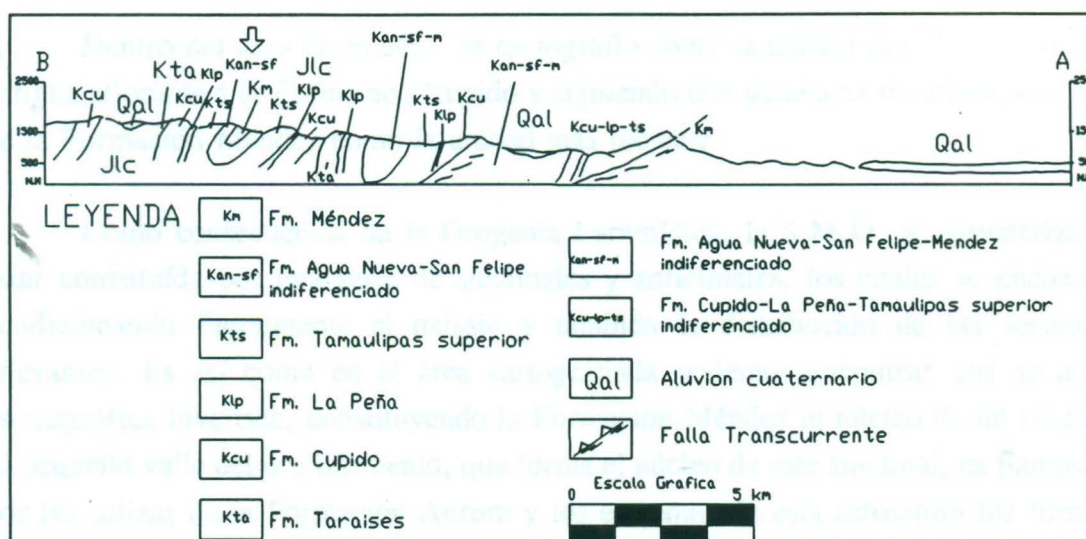 Kan-sf-m
B
Kta Klp Kan-sf Jlc Kan-sf-m A
2500 Kcu Qal Kcu Kts Km Kts Klp Kcu Klp Kts Klp Kcu Qal Kcu-lp-ts Km Qal
1500
500
Jlc Kta
LEYENDA
Km Fm. Méndez
Kan-sf Fm. Agua Nueva-San Felipe
indiferenciado
Kts Fm. Tamaulipas superior
Klp Fm. La Peña
Kcu Fm. Cupido
Kta Fm. Taraises
Kan-sf-m Fm. Agua Nueva-San Felipe-Mendez
indiferenciado
Kcu-lp-ts Fm. Cupido-La Peña-Tamaulipas superior
indiferenciado
Qal Aluvion cuaternario
Falla Transcurrente
Escala Grafica
0 5 km